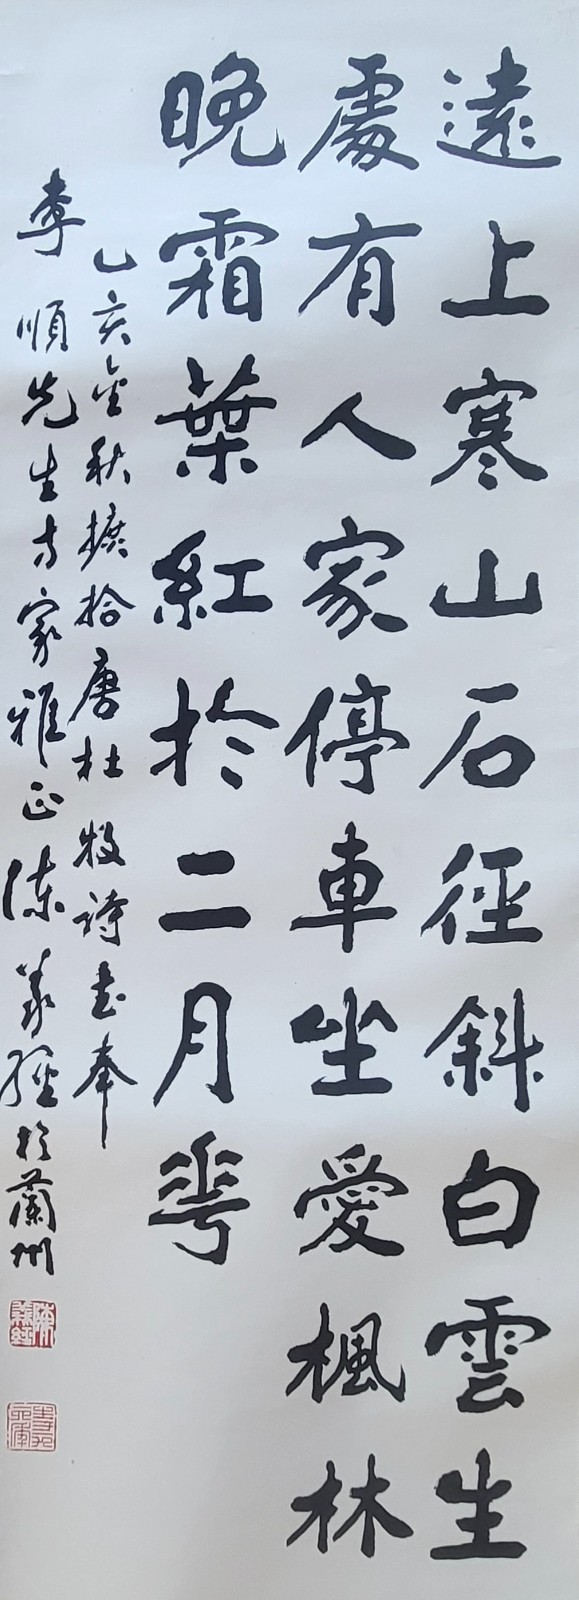 遠上寒山石徑斜白雲生
處有人家停車坐愛楓林
晚霜葉紅於二月花
乙亥金秋摭拾唐杜牧詩書奉
李順先生方家雅正陳義經於蘭州
陳義經